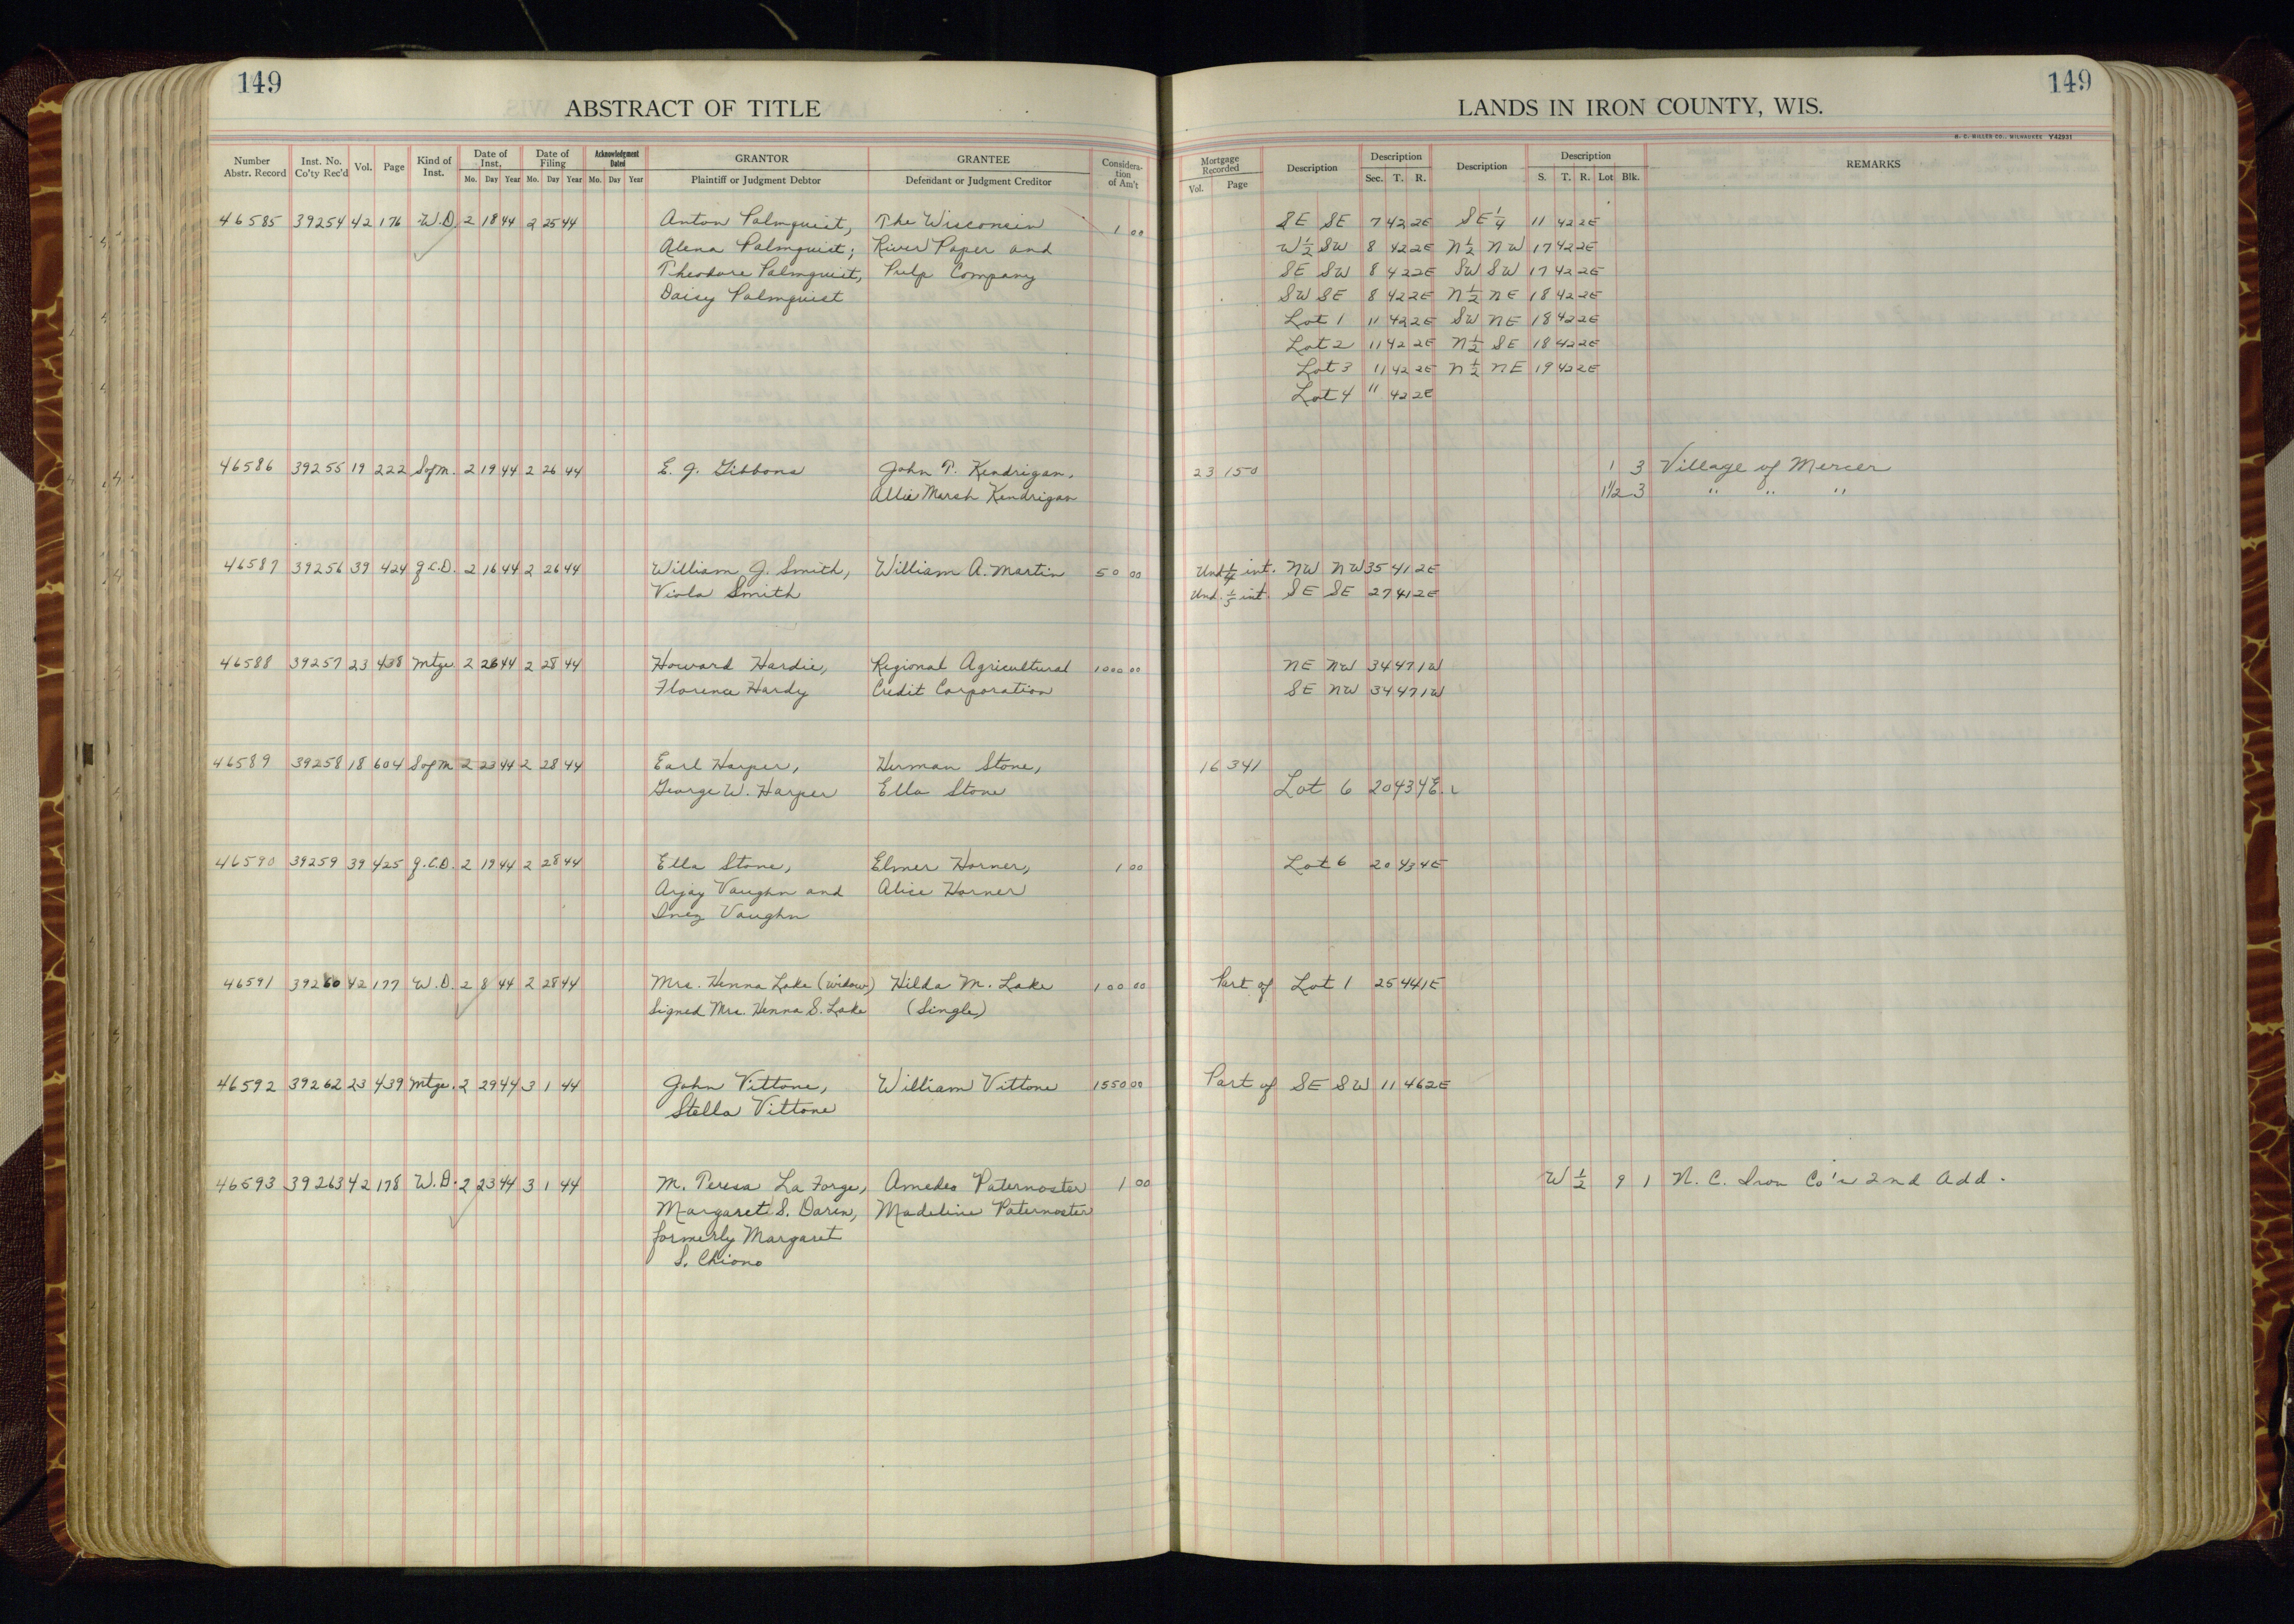 149
ABSTRACT OF TITLE
Number Abstr. Record | Inst. No. Co'ty Rec'd | Vol. | Page | Kind of Inst. | Date of Inst. Mo. Day Year | Date of Filing Mo. Day Year | Acknowledgment Dated Mo. Day Year | GRANTOR Plaintiff or Judgment Debtor | GRANTEE Defendant or Judgment Creditor | Consideration of Am't
149
LANDS IN IRON COUNTY, WIS.
H. C. MILLER CO., MILWAUKEE Y42931
Mortgage Recorded Vol. Page | Description | Description Sec. T. R. | Description | Description S. T. R. Lot Blk. | REMARKS
46585 39254 42 176 W.D. 2 18 44 2 25 44 Anton Palmquist, The Wisconsin 1 00 SE SE 7 42 2E SE 1/4 11 42 2E
Alena Palmquist; River Paper and W 1/2 SW 8 42 2E N 1/2 NW 17 42 2E
Theodore Palmquist, Pulp Company SE SW 8 42 2E SW SW 17 42 2E
Daisy Palmquist SW SE 8 42 2E N 1/2 NE 18 42 2E
Lot 1 11 42 2E SW NE 18 42 2E
Lot 2 11 42 2E N 1/2 SE 18 42 2E
Lot 3 11 42 2E N 1/2 NE 19 42 2E
Lot 4 " 42 2E
46586 39255 19 222 S of M. 2 19 44 2 26 44 E. J. Gibbons John T. Kendrigan, 23 150 1 3 Village of Mercer
Allie Marsh Kendrigan 11/2 3 " " "
46587 39256 39 424 Q.C.D. 2 16 44 2 26 44 William J. Smith, William A. Martin 50 00 Und 1/4 int. NW NW 35 41 2E
Viola Smith Und. 1/5 int. SE SE 27 41 2E
46588 39257 23 438 Mtge. 2 26 44 2 28 44 Howard Hardie, Regional Agricultural 1000 00 NE NW 34 47 1W
Florence Hardy Credit Corporation SE NW 34 47 1W
46589 39258 18 604 S of M 2 23 44 2 28 44 Earl Harper, Herman Stone, 16 341
George W. Harper Ella Stone Lot 6 20 43 4E.
46590 39259 39 425 Q.C.D. 2 19 44 2 28 44 Ella Stone, Elmer Horner, 1 00 Lot 6 20 43 4E
Arjay Vaughn and Alice Horner
Inez Vaughn
46591 39260 42 177 W.D. 2 8 44 2 28 44 Mrs. Henna Lake (widow) Hilda M. Lake 100 00 Part of Lot 1 25 44 1E
Signed Mrs. Henna S. Lake (Single)
46592 39262 23 439 Mtge. 2 29 44 3 1 44 John Vittone, William Vittone 1550 00 Part of SE SW 11 46 2E
Stella Vittone
46593 39263 42 178 W.D. 2 23 44 3 1 44 M. Teresa La Forge, Amedeo Paternoster 1 00 W 1/2 9 1 N. C. Iron Co's 2nd Add.
Margaret S. Darin, Madeline Paternoster
formerly Margaret
S. Chiono